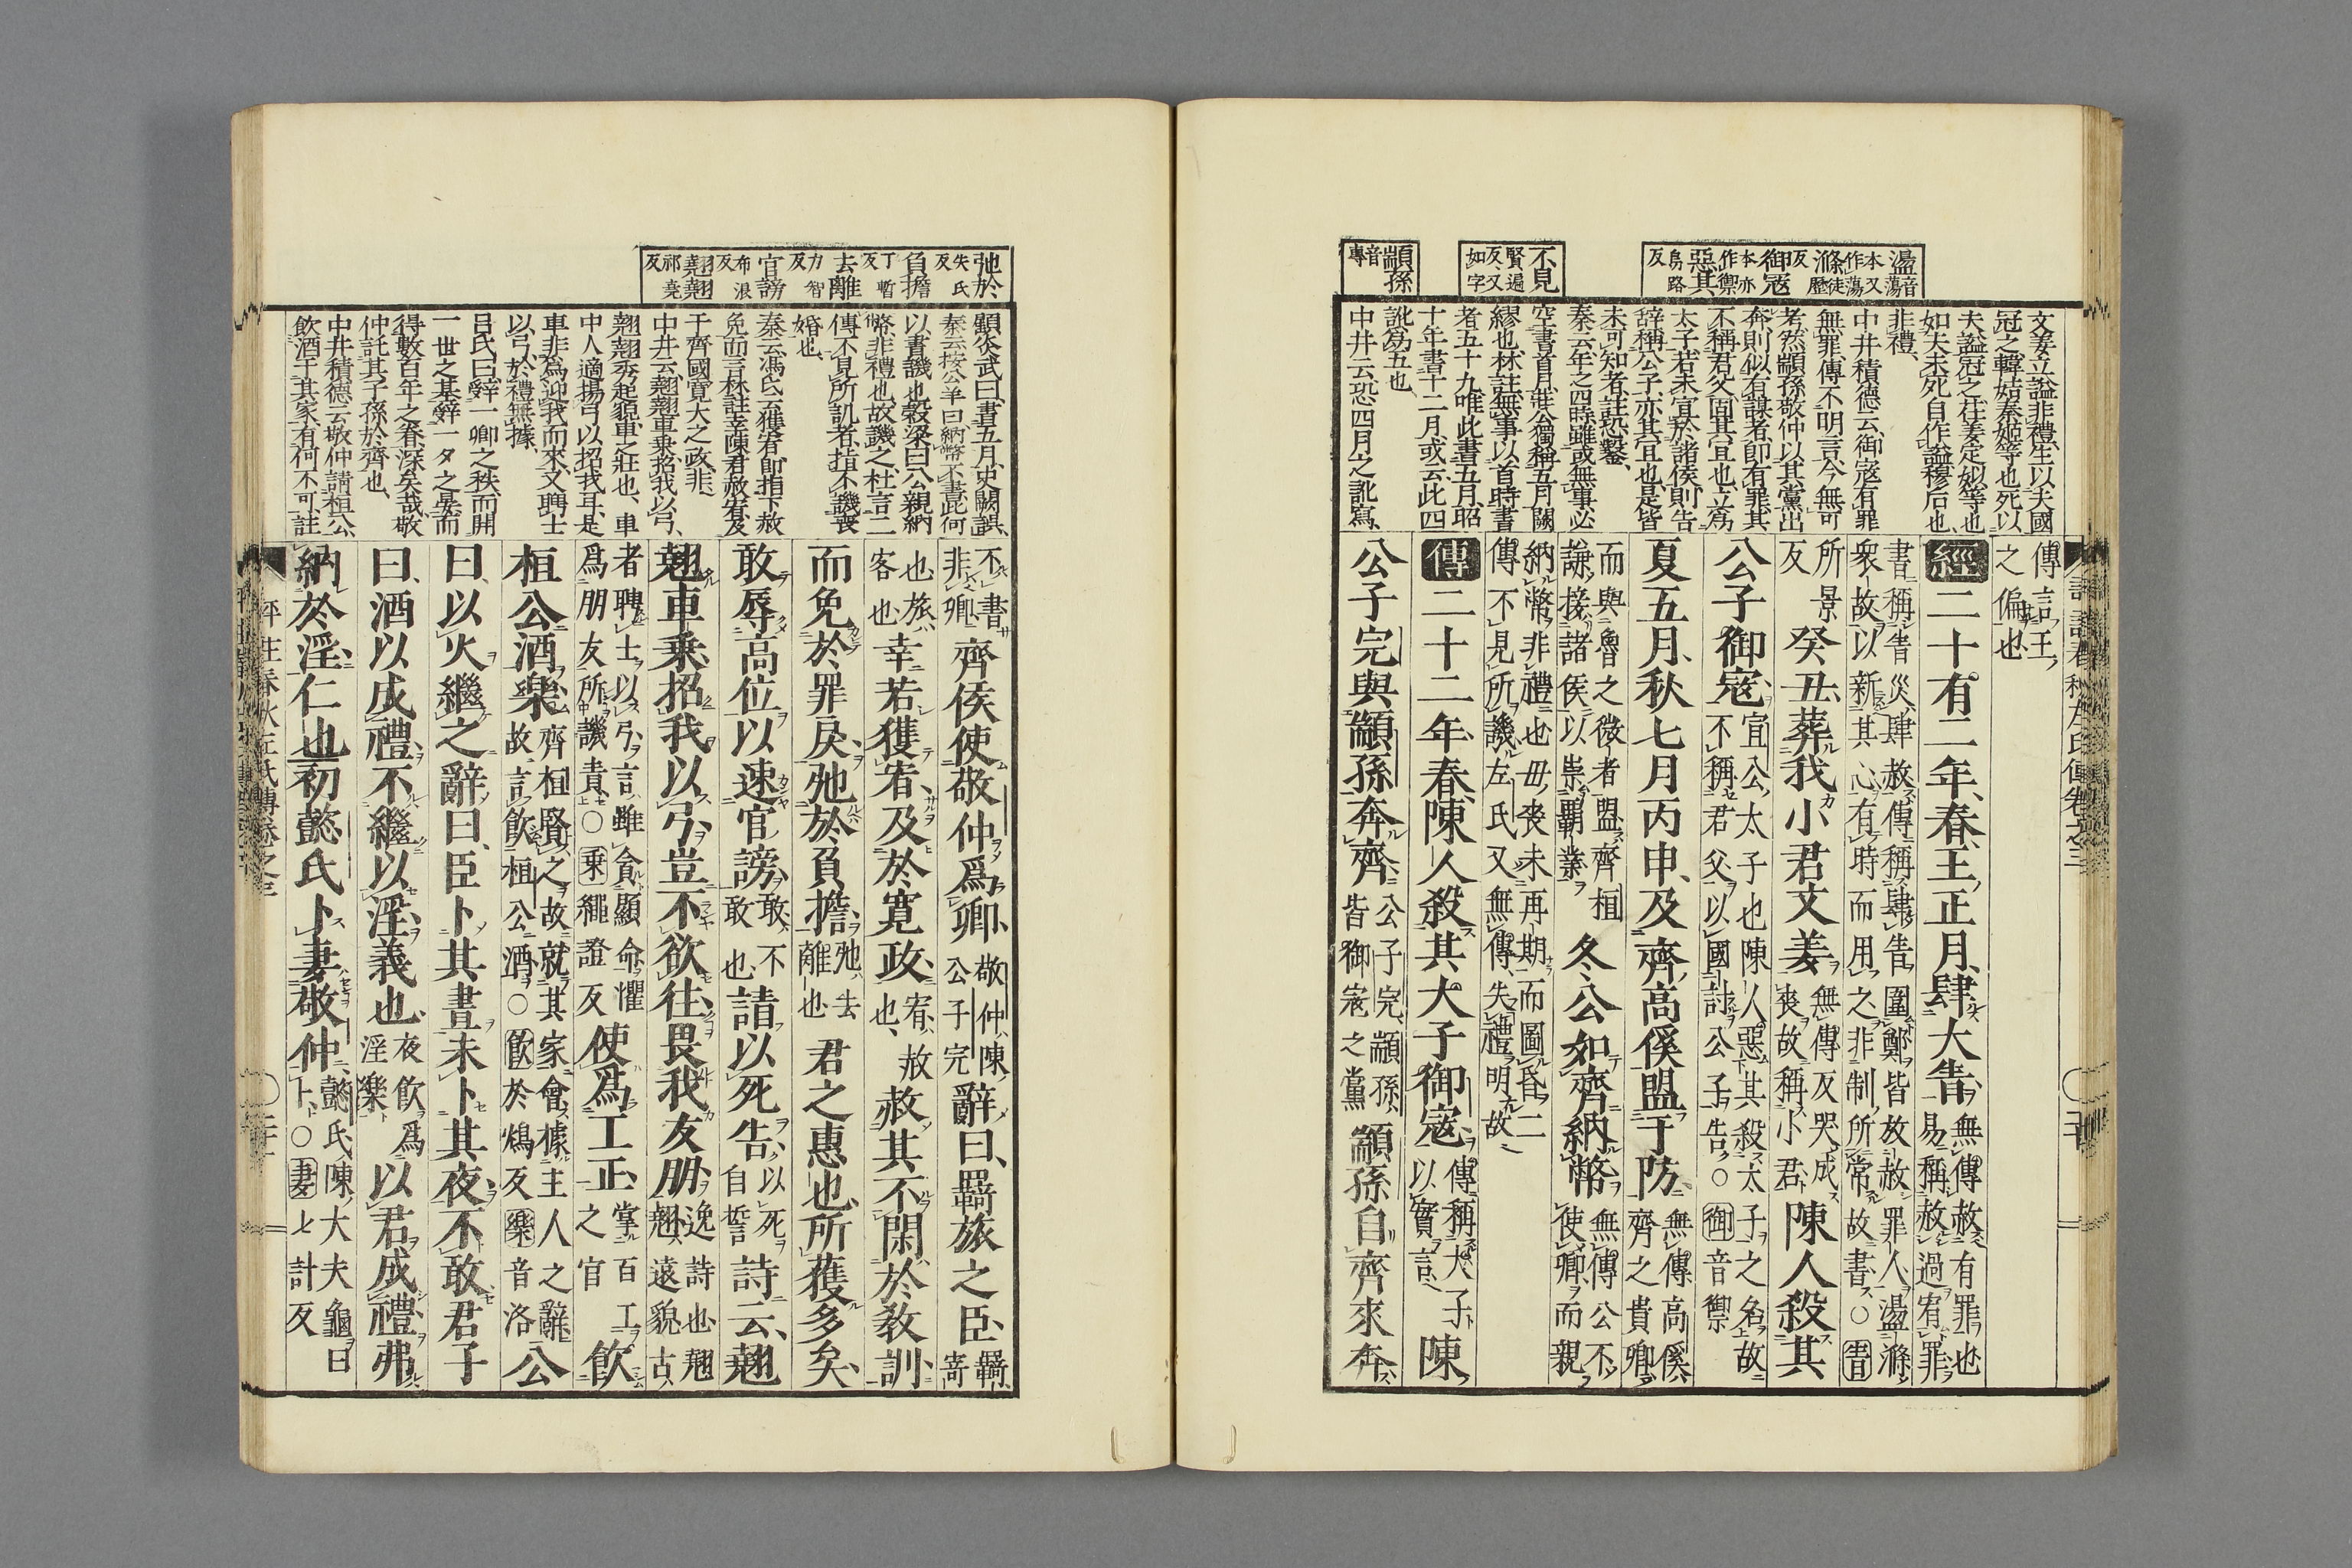 盪音蕩本又作蕩滌徒歷反御寇本亦作禦惡其烏路反
不見賢遍反又如字
顓孫音專
文姜立謚非禮生以夫國
冠之韓姞秦姬等也死以
夫謚冠之莊姜定姒等也
如夫未死自作謚穆后也
非禮
中井積德云御寇有罪
無罪傳不明言今無可
考然顓孫敬仲以其黨出
奔則似有謀者即有罪其
不稱君父固其宜也立爲
太子若未宜於諸侯則告
辞稱公子亦其宜也是皆
未可知者註恐鑿
秦云年之四時雖或無事必
空書首月莊公獨稱五月闕
繆也林註無事以首時書
者五十九唯此書五月昭
十年書十二月或云此四
訛爲五也
中井云恐四月之訛寫
傳言王之偏也
經二十有二年春王正月肆大眚無傳赦有罪也易稱赦過宥罪
書稱眚災肆赦傳稱肆眚圍鄭皆放赦罪人盪滌衆故以新其心有時而用之非制所常故書○眚
所景反癸丑葬我小君文姜無傳反哭成喪故稱小君陳人殺其
公子御寇宣公太子也陳人惡其殺太子之名故不稱君父以國討公子告○御音禦
夏五月秋七月丙申及齊高傒盟于防無傳高傒齊之貴卿
而與魯之微者盟齊桓謙接諸侯以崇霸業冬公如齊納幣無傳公不使卿而親
納幣非禮也毋喪未再期而圖昏二傳不見所譏左氏又無傳失禮明故
傳二十二年春陳人殺其大子御寇傳稱大子以實言陳
公子完與顓孫奔齊公子完顓孫皆御寇之黨顓孫自齊來奔
弛於失氏反負擔丁暫反去離力智反官謗布浪反翹翹祁堯反
顧炎武曰書五月史闕誤
秦云按公羊曰納幣不書此何
以書譏也穀梁曰公親納
幣非禮也故譏之杜言二
傳不見所譏者指不譏喪
婚也
秦云馮氏云獲宥即指下赦
免而言林註幸陳君赦宥及
于齊國寬大之政非
中井云翹翹車乗招我以弓
翹翹秀起貌車之壯也車
中人適揚弓以招我耳是
車非爲迎我而來又聘士
以弓於禮無據
呂氏曰辭一卿之秩而開
一世之基辭一夕之宴而
得數百年之春深矣哉敬
仲託其子孫於齊也
中井積德云敬仲請桓公
飲酒于其家有何不可註
不書非卿齊侯使敬仲爲卿敬仲陳公子完辭曰羈旅之臣羈寄
也旅客也幸若獲宥及於寬政宥赦也赦其不閑於教訓
而免於罪戾弛於負擔弛去離也君之惠也所獲多矣
敢辱高位以速官謗敢不敢也請以死告以死自誓詩云翹
翹車乗招我以弓豈不欲往畏我友朋逸詩也翹翹遠貌古
者聘士以弓言雖貪顯命懼爲朋友所譏責○乗繩證反使爲工正掌百工之官飲
桓公酒樂齊桓賢之故就其家會據主人之辭故言飲桓公酒○飲於鴆反樂音洛公
曰以火繼之辭曰臣卜其晝未卜其夜不敢君子
曰酒以成禮不繼以淫義也夜飲爲淫樂以君成禮弗
納於淫仁也初懿氏卜妻敬仲懿氏陳大夫龜曰卜○妻七計反